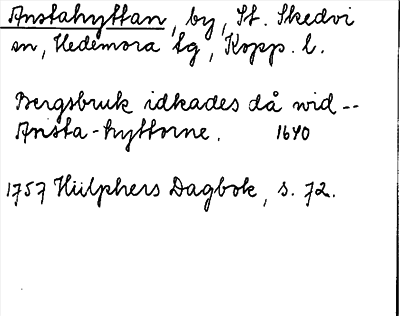 Anstahyttan, by, St. Skedvi
sn, Hedemora tg, Kopp. l.
Bergsbruk idkades då wid --
Ansta-hyttorne. 1640
1757 Hülphers Dagbok, s. 72.